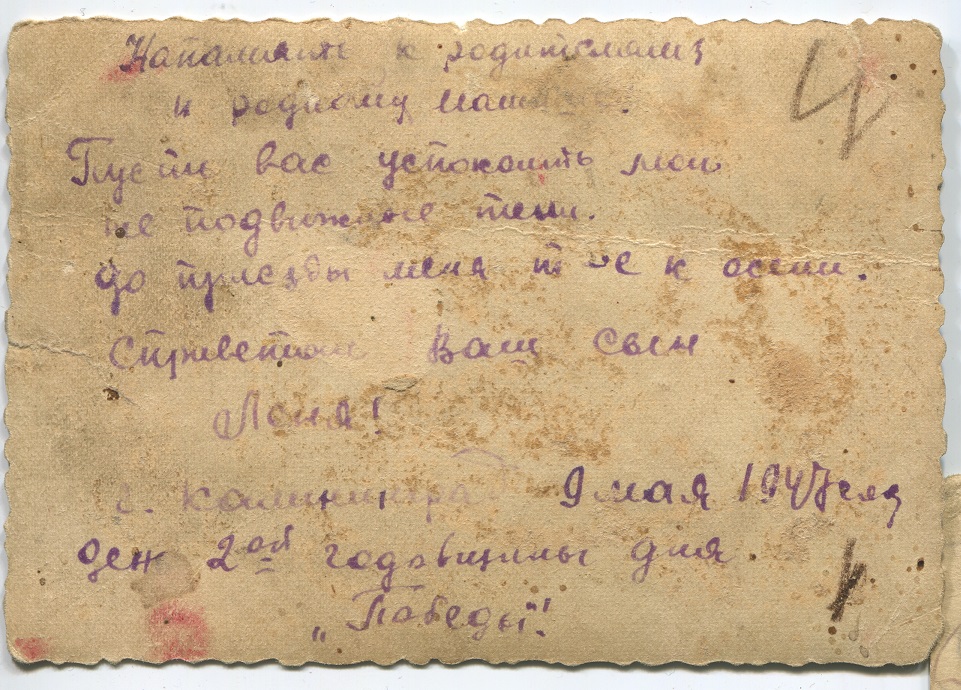 На память к родителям
и родному
Пусть вас успокоить мои
не подвижные тени.
до приезды меня к осени.
Сприветом Ваш сын
Лёня!
г. Калининград 9 мая 1947 год
ден 2ой годовщины дня
„Победы"!